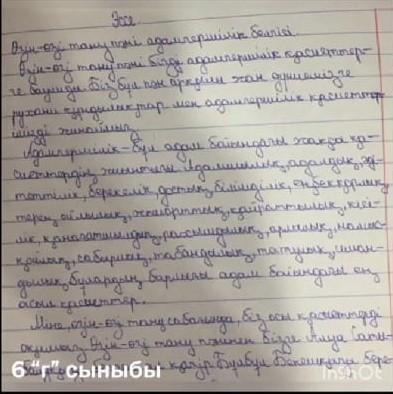 Эссе.
Өзін-өзі тану пәні адамгершілік белгісі.
Өзін-өзі тану пәні бізді адамгершілік қасиеттер-
ге баулиды. Біз бұл пән арқылы жан дүниемізге
рухани құндылықтар мен адамгершілік қасиеттер
жинаймыз.
Адамгершілік - бұл адам бойындағы жақсы қа-
сиеттердің жиынтығы. Адамшылық, адалдық, әде-
птілік, достық, білімділік, еңбекқорлық
терең ойлылық, жомарттық, қайраттылық, кісі-
лік, қанағатшылдық, арлылық, намыс-
қойлық, сабырлық, табандылық, татулық, иман-
дылық, бұлардың барлығы адам бойындағы ең
асыл қасиеттер.
Міне, өзін-өзі тану сабағында, біз осы қасиеттерді
оқимыз. Өзін-өзі тану пәнінен бізге
қазір бере-
6 "г" сыныбы
InShOt